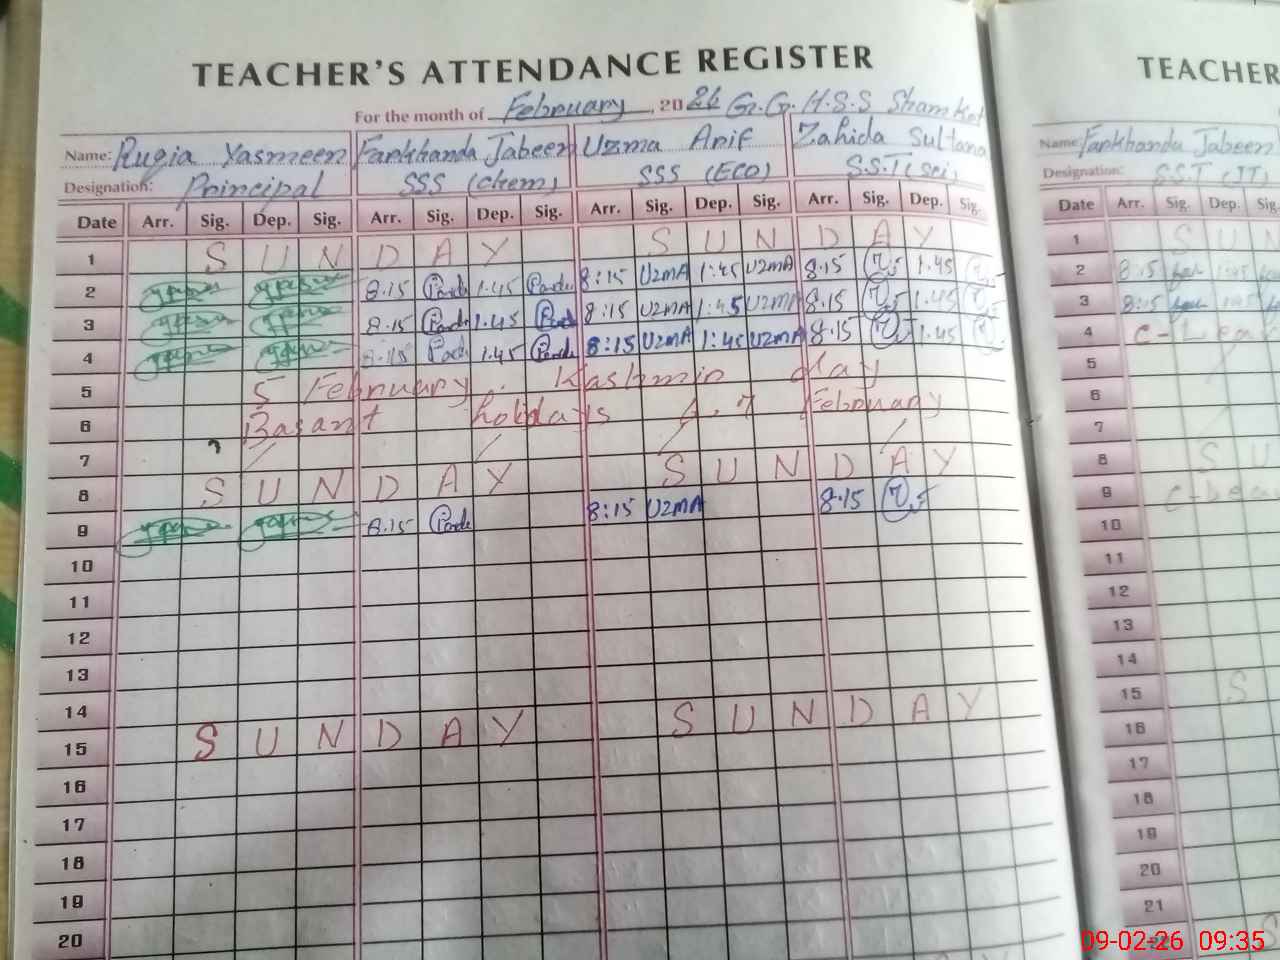 TEACHER'S ATTENDANCE REGISTER
For the month of February, 2026 G.G.H.S.S Shamkot
Name: Ruqia Yasmeen Farkhanda Jabeen Uzma Arif Zahida Sultana
Designation: Principal SSS (Chem) SSS (ECO) S.S.T(Sci)
Date Arr. Sig. Dep. Sig. Arr. Sig. Dep. Sig. Arr. Sig. Dep. Sig. Arr. Sig. Dep. Sig.
1 S U N D A Y S U N D A Y
2 8.15 1.45 8:15 UZMA 1:45 UZMA 8.15 1.45
3 8.15 1.45 8:15 UZMA 1:45 UZMA 8.15 1.45
4 8.15 1.45 8:15 UZMA 1:45 UZMA 8.15 1.45
5 5 February Kashmir day
6 Basant holidays 6.7 February
7
8 S U N D A Y S U N D A Y
9 8.15 8:15 UZMA 8.15
10
11
12
13
14
15 S U N D A Y S U N D A Y
16
17
18
19
20
TEACHER
Name: Farkhanda Jabeen
Designation: S.S.T (IT)
Date Arr. Sig. Dep. Sig.
1 S U N
2 8:15 1:45
3 8:15
4 C-Leave
5
6
7
8 S U
9
10
11
12
13
14
15 S
16
17
18
19
20
21
09-02-26 09:35